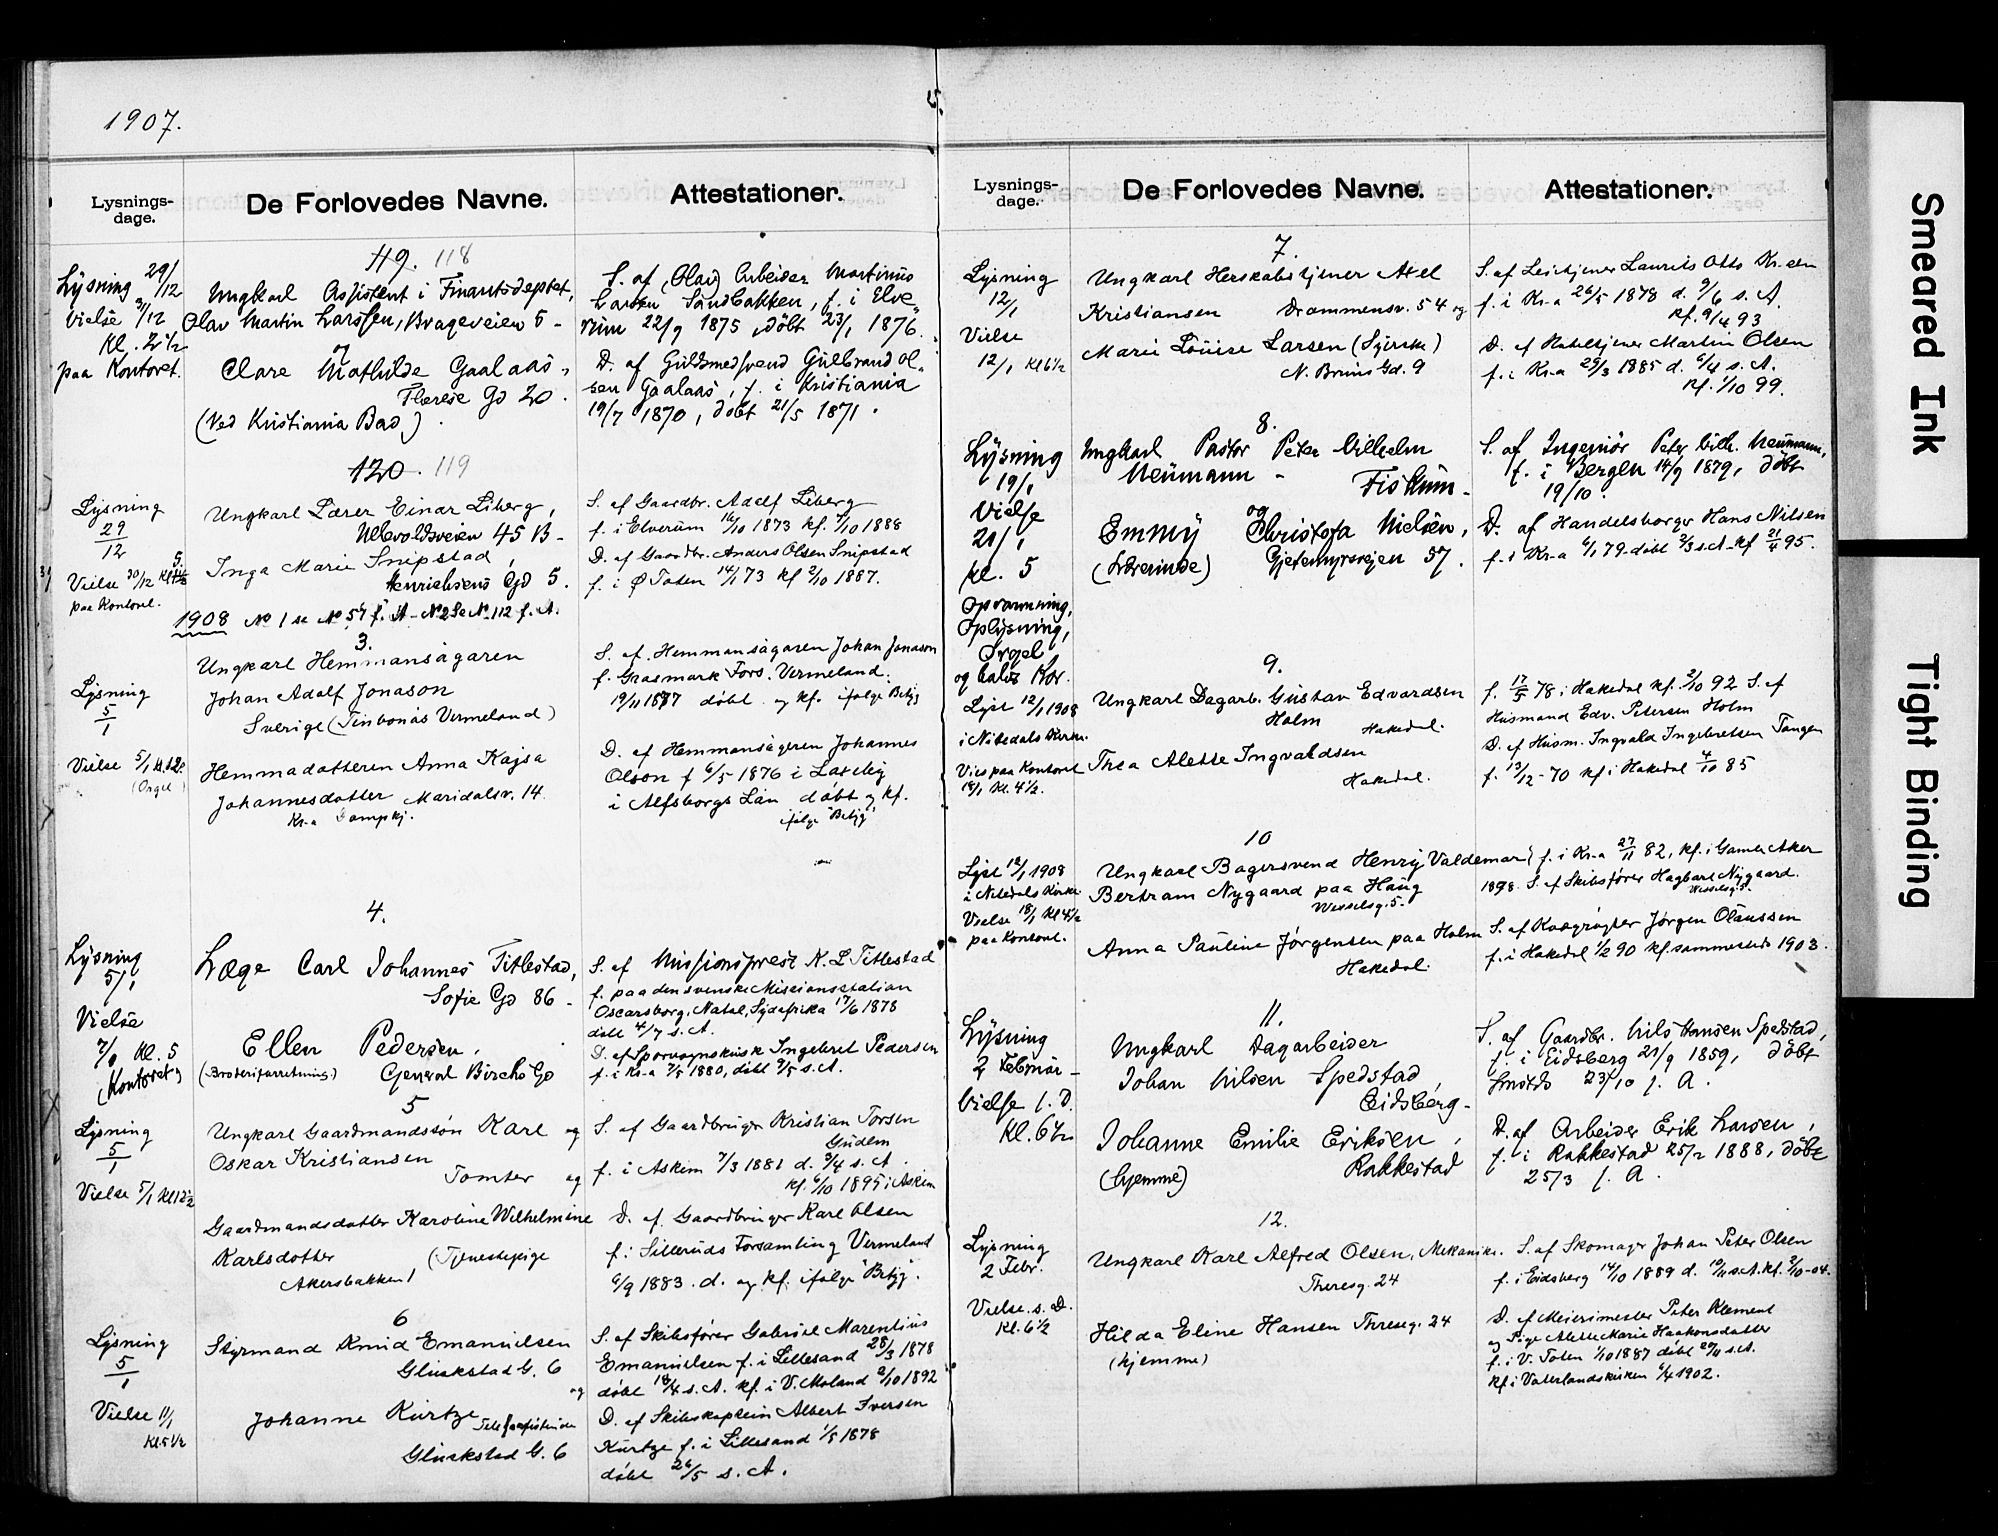 1907.
Lysnings-
dage.
De Forlovedes Navne.
Attestationer.
119. 118
Lysning 29/12
Vielse 31/12
Kl. 2 1/2
paa Kontoret.
Ungkarl Assistent i Finantsdeptet,
Olav Martin Larssen, Brageveien 5 -
og
Clare Mathilde Gaalaas,
Therese Gd 20.
(Ved Kristiania Bad).
S. af (Olav) Arbeider Martinus
Larsen Sandbakken, f. i Elve-
rum 22/9 1875, døbt 23/1 1876.
D. af Guldsmedsvend Gulbrand Ol-
sen Gaalaas, f. i Kristiania
19/7 1870, døbt 21/5 1871.
120. 119
Lysning
29
12
Vielse 30/12 Kl. 5
paa Kontoret.
Ungkarl Lærer Einar Liberg,
Ullevoldsveien 45 B -
Inga Marie Snipstad,
Henrichsens Gd 5.
S. af Gaardbr. Adolf Liberg
f. i Elverum 16/10 1873 kf. 7/10 1888
D. af Gaardbr. Anders Olsen Snipstad
f. i Ø Toten 14/1 73 kf 2/10 1887.
1908 No 1 se No 57 f. A - No 2 se No 112 f. A.
3.
Lysning
5
1
Vielse 5/1 kl. 12
(Orgel)
Ungkarl Hemmansägaren
Johan Adolf Jonason
Sverige (Vermeland)
Hemmadotteren Anna Kajsa
Johannesdotter Maridalsv. 14.
Kr-a
S. af Hemmansägaren Johan Jonason
f. Grasmark Fors. Vermeland.
19/11 1877 døbt og kf. ifølge Betyg
D. af Hemmansägeren Johannes
Olson f 6/5 1876 i
i Alfsborgs Län døbt og kf.
ifølge "Betyg"
4.
Lysning
5/1
Vielse
7/1 Kl. 5
(Kontoret)
Læge Carl Johannes Titlestad,
Sofie Gd 86 -
Ellen Pedersen,
(Broderiforretning) General Birchs Gd
S. af Missionsprest K. L Titlestad
f. paa den svenske Missionsstation
Oscarsborg, Natal, Sydafrika 17/6 1878
døbt 4/7 s. A.
D. af Sporvognskusk Ingebret Pedersen
f. i Kr-a 7/5 1880, døbt 9/5 s. A.
5
Lysning
5
1
Vielse 5/1 Kl 12 1/2
Ungkarl Gaardmandssøn Karl og
Oskar Kristiansen
Tomter og
Gaardmandsdotter Karoline Wilhelmine
Karlsdotter (Tjenestepige
Akersbakken 1
S. af Gaardbruger Kristian Torsen
Gudem
f. i Askim 7/3 1881 d. 3/4 s. A
kf. 6/10 1895 i Askim
D. af Gaardbruger Karl Olsen
f. i Silleruds Forsamling Vermeland
6/9 1883. d. og kf. ifølge "Betyg".
6
Lysning
5
1
Vielse 11/1
Kl. 5 1/2
Styrmand Knud Emanuelsen
Glückstad G. 6
og
Johanne Kurtze Telefonistinde
Glückstad G. 6
S. af Skibsfører Gabriel Marentius
Emanuelsen f. i Lillesand 28/3 1878
døbt 18/4 s. A. kf. i V. Moland 2/10 1892
D. af Skibskaptein Albert Iversen
Kurtze f. i Lillesand 1/5 1878
døbt 26/5 s. A.
Lysnings-
dage.
De Forlovedes Navne.
Attestationer.
7.
Lysning
12/1
Vielse
12/1 Kl 6 1/2
Ungkarl Herskabstjener Axel
Kristiansen Drammensv. 54 og
Marie Louise Larsen (Syerske)
N. Bruns Gd. 9
S. af Leietjener Laurits Otto Kr.sen
f. i Kr-a 26/5 1878 d. 9/6 s. A.
kf. 9/4 93
D. af Hoteltjener Martin Olsen
f. i Kr-a 29/3 1885 d. 6/4 s. A.
kf. 1/10 99.
8.
Lysning
19/1
Vielse
21/1
kl. 5
Opvarmning,
Oplysning,
Orgel
og halvt Kor.
Ungkarl Pastor Peter Vilhelm
Neumann - Fiskum -
og
Emmy Christofa Nielsen,
(Lærerinde) Gjetemyrsveien 57.
S. af Ingeniør Peter Vilh. Neumann,
f. i Bergen 14/9 1879, døbt
19/10.
D. af Handelsborger Hans Nilsen
f. i Kr-a 6/1 79 døbt 2/3 s. A - kf 21/4 95.
9.
Lyst 12/1 1908
i Nitedals Kirke.
Vies paa Kontoret
18/1 Kl. 4 1/2.
Ungkarl Dagarb. Gustav Edvardsen
Holm
Hakedal.
Thea Alette Ingvaldsen
Hakedal.
f. 17/5 78 i Hakedal kf. 2/10 92 S. af
Husmand Edv. Petersen Holm
D. af Husm. Ingvald Ingebretsen Tangen
f. 13/12 - 70 kf i Hakedal 4/10 85
10
Lyst 12/1 1908
i Nitedals Kirke
Vielse 18/1 Kl 4 1/2
paa Kontoret.
Ungkarl Bagersvend Henry Valdemar
Bertram Nygaard paa Haug
Wesselsg. 5.
Anna Pauline Jørgensen paa Holm
Hakedal.
f. i Kr-a 27/11 82, kf. i Gamle Aker
1898. S. af Skibsfører Hagbart Nygaard.
Wesselsg. 5.
S. af Kvægrøgter Jørgen Olaussen
f. i Hakedal 1/2 90 kf sammesteds 1903.
11.
Lysning
2 Februar -
Vielse s. D.
Kl. 6 1/2
Ungkarl Dagarbeider
Johan Nilsen Spedstad,
Eidsberg -
Johanne Emilie Eriksen,
(hjemme) Rakkestad
S. af Gaardbr. Nils Hansen Spedstad,
f. i Eidsberg 21/9 1859, døbt
smsteds 23/10 s. A.
D. af Arbeider Erik Larsen,
f. i Rakkestad 25/2 1888, døbt
25/3 s. A.
12.
Lysning
2 Febr.
Vielse s. D.
Kl. 6 1/2
Ungkarl Karl Alfred Olsen, Mekaniker.
Theresg. 24
Hilda Eline Hansen Thresg. 24
(hjemme)
S. af Skomager Johan Peter Olsen
f. i Eidsberg 14/10 1889 d. 10/11 s. A. kf. 2/10 - 04.
D. af Meierimester Peter Klement
og Pige Alette Marie Haakonsdatter
f. i V. Toten 1/10 1887 døbt 20/11 s. A.
kf i Vaterlandskirken 6/4 1902.
Smeared Ink
Tight Binding